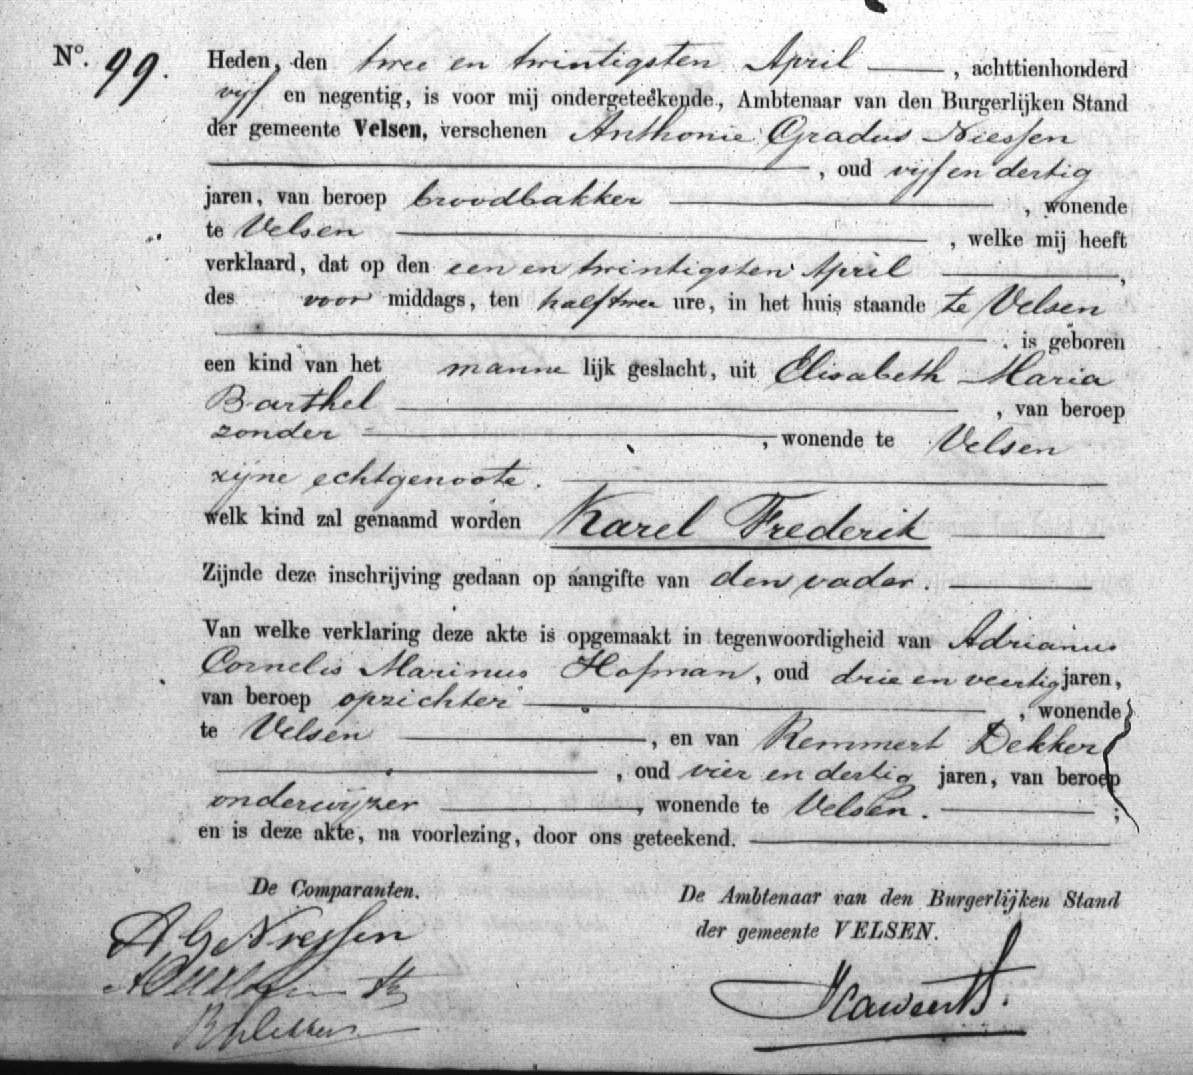 Nº. 99. Heden, den twee en twintigsten April, achttienhonderd
vijf en negentig, is voor mij ondergeteekende, Ambtenaar van den Burgerlijken Stand
der gemeente Velsen, verschenen Anthonie Gradus Niessen
, oud vijf en dertig
jaren, van beroep broodbakker, wonende
te Velsen, welke mij heeft
verklaard, dat op den een en twintigsten April,
des voor middags, ten half twee ure, in het huis staande te Velsen
. is geboren
een kind van het manne lijk geslacht, uit Elisabeth Maria
Barthel, van beroep
zonder, wonende te Velsen
zijne echtgenoote.
welk kind zal genaamd worden Karel Frederik
Zijnde deze inschrijving gedaan op aangifte van den vader.
Van welke verklaring deze akte is opgemaakt in tegenwoordigheid van Adrianus
Cornelis Marinus Hofman, oud drie en veertig jaren,
van beroep opzichter, wonende
te Velsen, en van Remmert Dekker
, oud vier en dertig jaren, van beroep
onderwijzer, wonende te Velsen. ;
en is deze akte, na voorlezing, door ons geteekend.
De Comparanten.
De Ambtenaar van den Burgerlijken Stand
der gemeente VELSEN.
A G Niessen
R Dekker